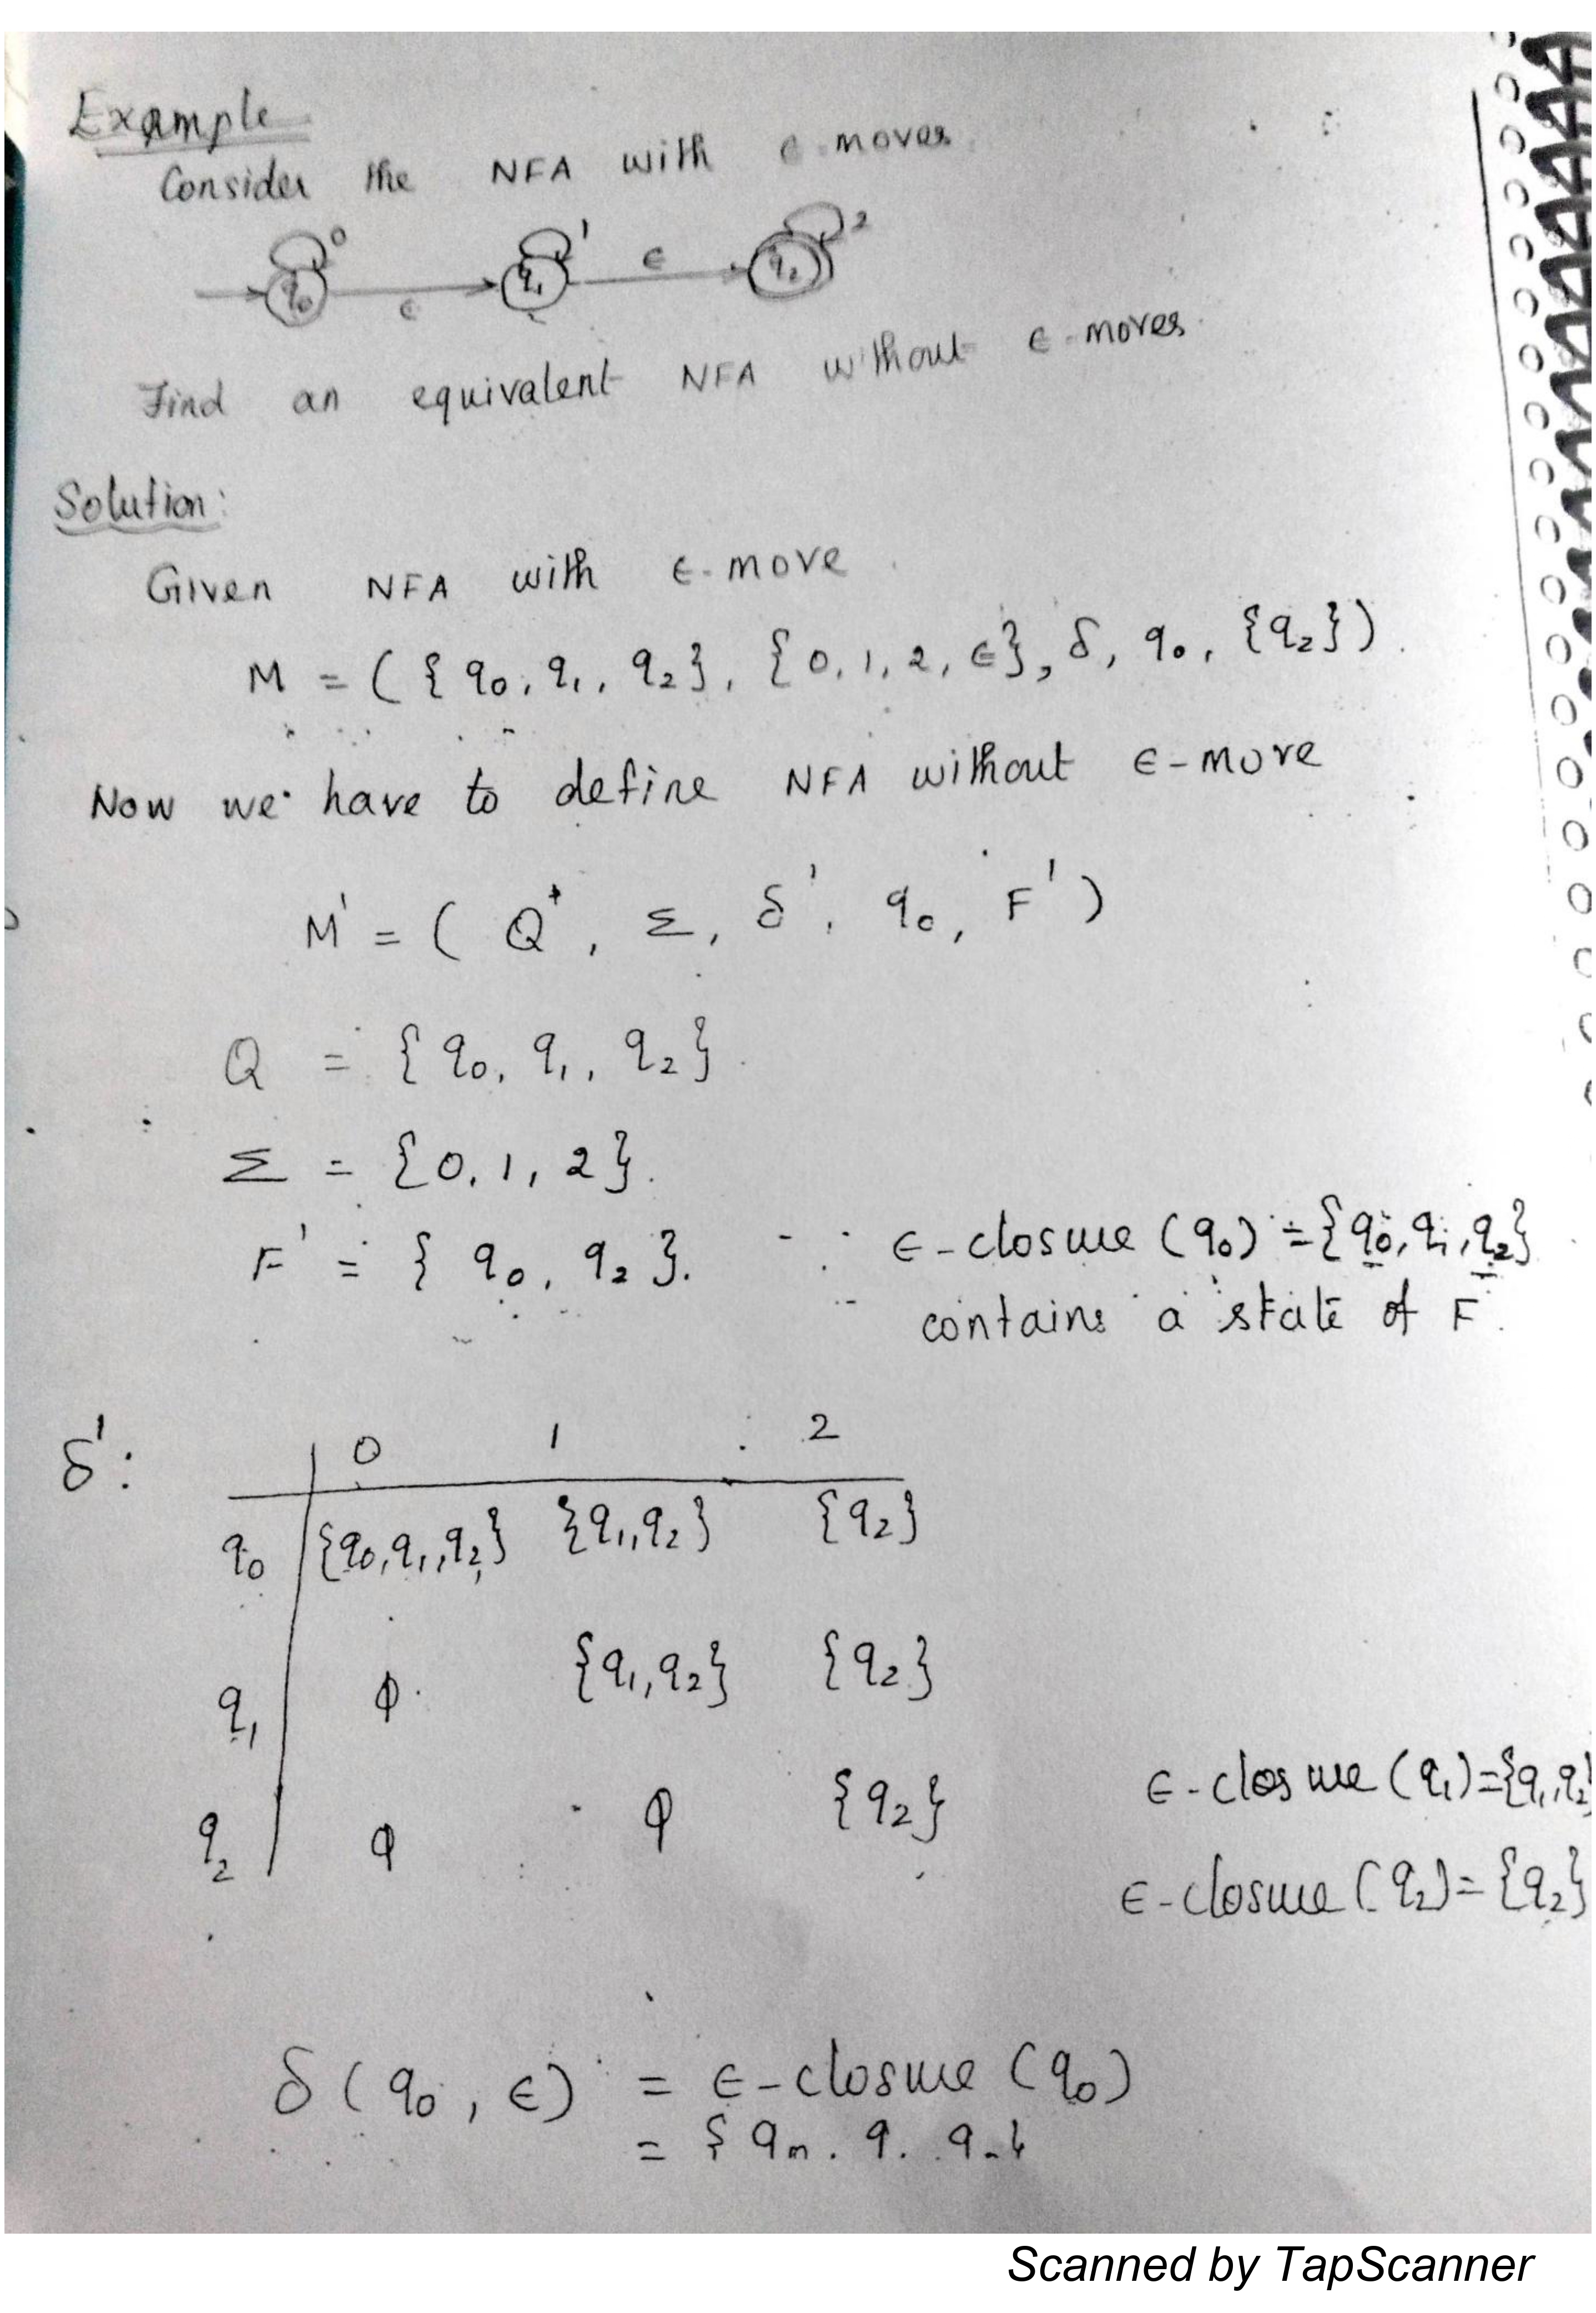 Example
Consider the NFA with ϵ moves
0 1 2
q₀ ϵ q₁ ϵ q₂
Find an equivalent NFA without ϵ-moves.
Solution:
Given NFA with ϵ-move.
M = ({q₀, q₁, q₂}, {0, 1, 2, ϵ}, δ, q₀, {q₂}).
Now we have to define NFA without ϵ-move
M' = ( Q', Σ, δ', q₀, F' )
Q = {q₀, q₁, q₂}.
Σ = {0, 1, 2}.
F' = { q₀, q₂ }. ∵ ϵ-closure (q₀) = {q₀, q₁, q₂}
contains a state of F.
δ': 0 1 2
q₀ {q₀, q₁, q₂} {q₁, q₂} {q₂}
q₁ φ {q₁, q₂} {q₂}
q₂ φ φ {q₂}
ϵ-closure (q₁) = {q₁, q₂}
ϵ-closure (q₂) = {q₂}
δ (q₀, ϵ) = ϵ-closure (q₀)
Scanned by TapScanner